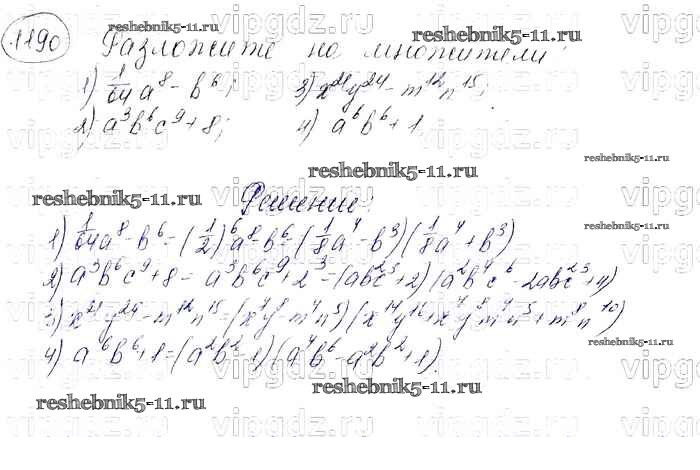 1190 Разложите на множители:
1) 1/64 a⁸ - b⁶; 3) x²¹y²⁴ - m¹²n¹⁵;
2) a³b⁶c⁹ + 8; 4) a⁶b⁶ + 1
Решение:
1) 1/64 a⁸ - b⁶ = (1/2)⁶a⁸ - b⁶ = (1/8 a⁴ - b³)(1/8 a⁴ + b³)
2) a³b⁶c⁹ + 8 = a³b⁶c⁹ + 2³ = (ab²c³ + 2)(a²b⁴c⁶ - 2ab²c³ + 4)
3) x²¹y²⁴ - m¹²n¹⁵ = (x⁷y⁸ - m⁴n⁵)(x¹⁴y¹⁶ + x⁷y⁸m⁴n⁵ + m⁸n¹⁰)
4) a⁶b⁶ + 1 = (a²b² - 1)(a⁴b⁶ - a²b² + 1).
reshebnik5-11.ru
vipgdz.ru